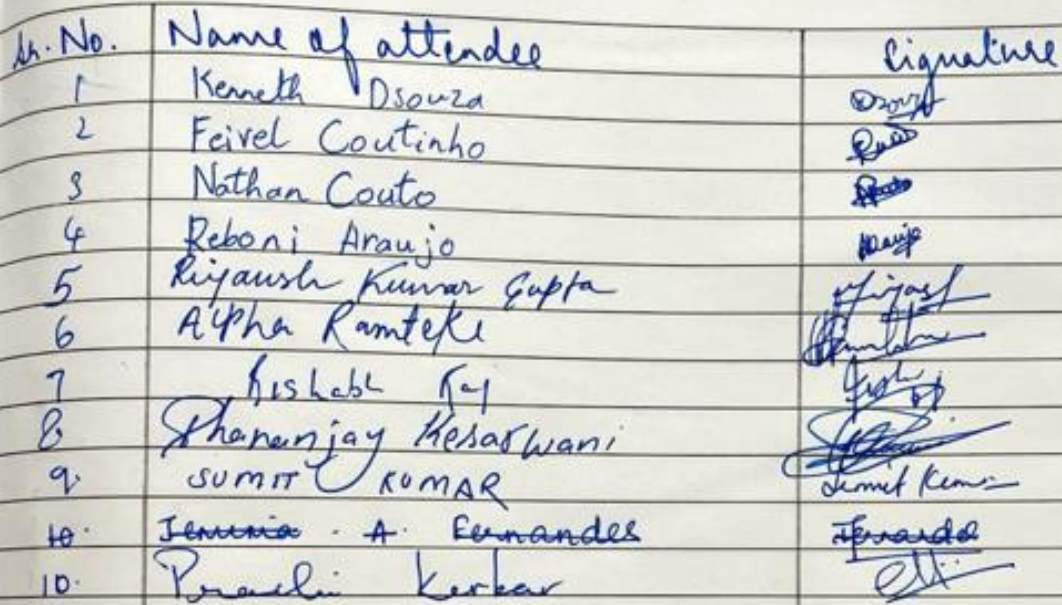 Sr. No. Name of attendee Signature
1 Kenneth Dsouza Dsouza
2 Feivel Coutinho
3 Nathan Couto
4 Reboni Araujo Araujo
5 Riyansh Kumar Gupta
6 Alpha Ramteke
7 Rishabh Raj
8 Dhananjay Kesarwani
9. SUMIT KUMAR Sumit Kumar
10. A. Fernandes
10. Kerkar